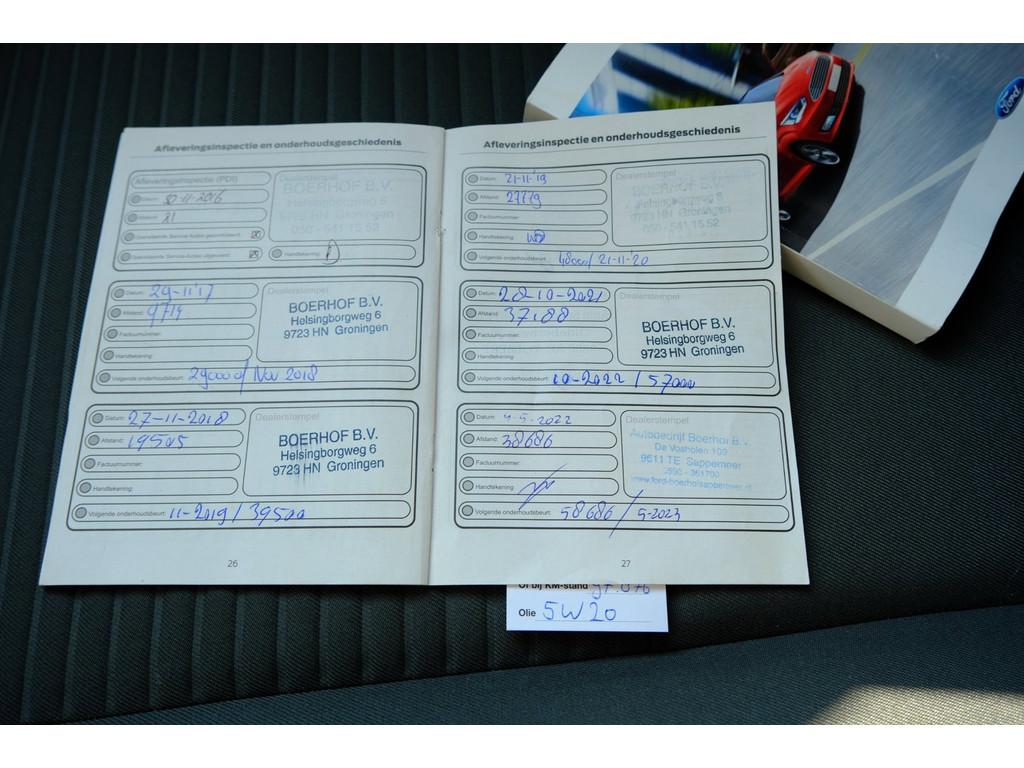 Afleveringsinspectie en onderhoudsgeschiedenis
Afleveringsinspectie (PDI)
Datum: 30-11-2016
Afstand: 21
Handtekening:
Dealerstempel
BOERHOF B.V.
Helsingborgweg 6
9723 HN Groningen
050 - 541 15 52
Datum: 29-11'17
Afstand: 9714
Factuurnummer:
Handtekening:
Volgende onderhoudsbeurt: 29000/ Nov 2018
Dealerstempel
BOERHOF B.V.
Helsingborgweg 6
9723 HN Groningen
Datum: 27-11-2018
Afstand: 19505
Factuurnummer:
Handtekening:
Volgende onderhoudsbeurt: 11-2019 / 39500
Dealerstempel
BOERHOF B.V.
Helsingborgweg 6
9723 HN Groningen
26
Afleveringsinspectie en onderhoudsgeschiedenis
Datum: 21-11-'19
Afstand: 27719
Factuurnummer:
Handtekening:
Volgende onderhoudsbeurt: 48000/ 21-11-'20
Dealerstempel
BOERHOF B.V.
Helsingborgweg 6
9723 HN Groningen
050 - 541 15 52
Datum: 28-10-2021
Afstand: 37188
Factuurnummer:
Handtekening:
Volgende onderhoudsbeurt: 10-2022 / 57000
Dealerstempel
BOERHOF B.V.
Helsingborgweg 6
9723 HN Groningen
Datum: 4-5-2022
Afstand: 38686
Factuurnummer:
Handtekening:
Volgende onderhoudsbeurt: 58686 / 5-2023
Dealerstempel
Autobedrijf Boerhof B.V.
De Vosholen 109
9611 TE Sappemeer
www.ford-boerhofsappemeer.nl
27
Of bij KM-stand
Olie 5W20
Ford